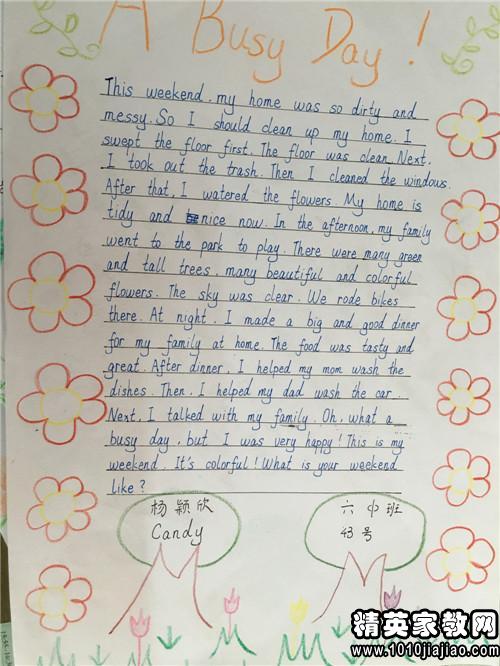 A Busy Day!
This weekend, my home was so dirty and
messy. So I should clean up my home. I
swept the floor first. The floor was clean. Next,
I took out the trash. Then I cleaned the windows.
After that, I watered the flowers. My home is
tidy and nice now. In the afternoon, my family
went to the park to play. There were many green
and tall trees, many beautiful and colorful
flowers. The sky was clear. We rode bikes
there. At night, I made a big and good dinner
for my family at home. The food was tasty and
great. After dinner, I helped my mom wash the
dishes. Then, I helped my dad wash the car.
Next, I talked with my family. Oh, what a
busy day, but I was very happy! This is my
weekend. It's colorful! What is your weekend
like?
杨颖欣
Candy
六中班
43号
精英家教网
www.1010jiajiao.com